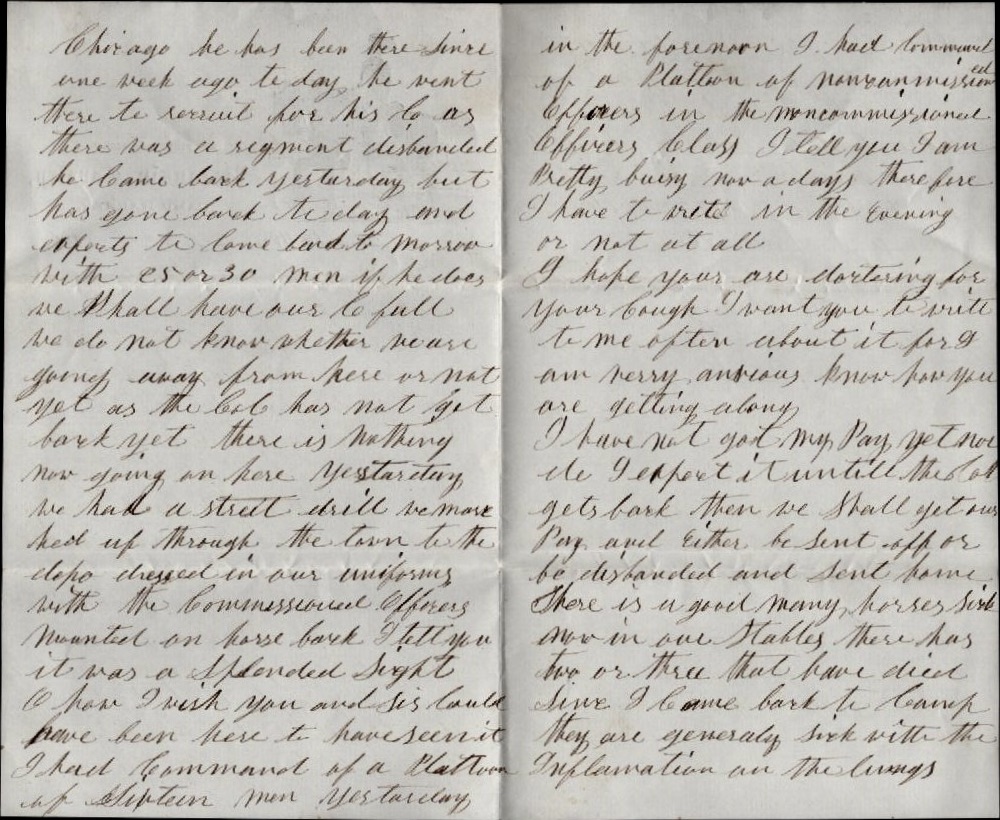 Chicago he has been there since
one week ago to day he went
there to recruit for his Co as
there was a regment disbanded
he Came back yestarday but
has gone back to day and
expects to Come back to morrow
with 25 or 30 men if he does
we Shall have our Co full
we do not know whether we are
going away from here or not
yet as the Col has not got
back yet there is nothing
now going on here Yesstarday
we had a street drill we marc
hed up through the town to the
depo dressed in our uniforms
with the Commissioned Officers
Mounted on horse back I tell you
it was a Splended Sight
O how I wish you and Sis Could
have been here to have seen it
I had Command of a Plattoon
of Sixteen men Yestarday
in the forenoon I had Command
of a Plattoon of noncommissioned
Officers in the noncommissioned
Officers Class I tell you I am
Pretty buisy now a days therefore
I have to write in the Evening
or not at all
I hope your are doctoring for
your Cough I want you to write
to me often about it for I
am verry anxious know how you
are getting along
I have not got my Pay yet nor
do I expect it untill the Col
gets back then we Shall get our
Pay and Either be Sent off or
be disbanded and Sent home
There is a good many horses Sick
now in our Stables there has
two or three that have died
Sinc I Came back to Camp
they are generaly sick with the
Inflamation on the lungs